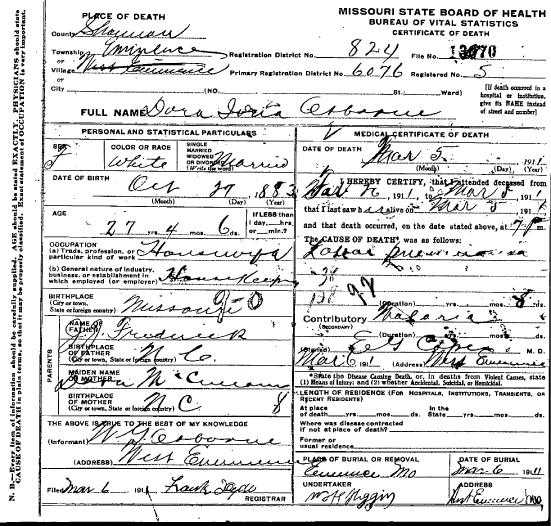 MISSOURI STATE BOARD OF HEALTH
BUREAU OF VITAL STATISTICS
CERTIFICATE OF DEATH
PLACE OF DEATH
County Shannon
Township Eminence Registration District No. 824 File No.
or
Village West Eminence Primary Registration District No. 6076 Registered No. 5
or
City (NO. St.; Ward)
[If death occurred in a hospital or institution, give its NAME instead of street and number]
FULL NAME Dora Osborne
PERSONAL AND STATISTICAL PARTICULARS
SEX F
COLOR OR RACE White
SINGLE MARRIED WIDOWED OR DIVORCED (Write the word) Married
DATE OF BIRTH Oct 27, 1883
(Month) (Day) (Year)
AGE 27 yrs. 4 mos. 6 ds.
If LESS than 1 day, hrs. or min.?
OCCUPATION
(a) Trade, profession, or particular kind of work Housewife
(b) General nature of industry, business, or establishment in which employed (or employer) Housekeeping
BIRTHPLACE
(City or town, State or foreign country) Missouri
PARENTS
NAME OF FATHER Frederick
BIRTHPLACE OF FATHER
(City or town, State or foreign country) N C.
MAIDEN NAME OF MOTHER
BIRTHPLACE OF MOTHER
(City or town, State or foreign country) N C. 8
THE ABOVE IS TRUE TO THE BEST OF MY KNOWLEDGE
(Informant) Osborne
(ADDRESS) West Eminence
Filed Mar 6 1911 Frank Hyde
REGISTRAR
MEDICAL CERTIFICATE OF DEATH
DATE OF DEATH Mar 5 1911
(Month) (Day) (Year)
I HEREBY CERTIFY, that I attended deceased from
191 , to Mar 191
that I last saw h alive on Mar 191
and that death occurred, on the date stated above, at
The CAUSE OF DEATH* was as follows:
Lobar pneumonia
92
(Duration) yrs. mos. 8 ds.
Contributory Malaria
(SECONDARY)
(Duration) yrs. mos. ds.
(Signed) M. D.
191 (Address) West Eminence
*State the Disease Causing Death, or, in deaths from Violent Causes, state
(1) Means of Injury; and (2) whether Accidental, Suicidal, or Homicidal.
LENGTH OF RESIDENCE (FOR HOSPITALS, INSTITUTIONS, TRANSIENTS, OR RECENT RESIDENTS)
At place of death yrs. mos. ds. In the State yrs. mos. ds.
Where was disease contracted
if not at place of death?
Former or
usual residence
PLACE OF BURIAL OR REMOVAL Eminence Mo
DATE OF BURIAL Mar 6 1911
UNDERTAKER
ADDRESS West Eminence Mo
N. B.—Every item of information should be carefully supplied. AGE should be stated EXACTLY. PHYSICIANS should state
CAUSE OF DEATH in plain terms, so that it may be properly classified. Exact statement of OCCUPATION is very important.